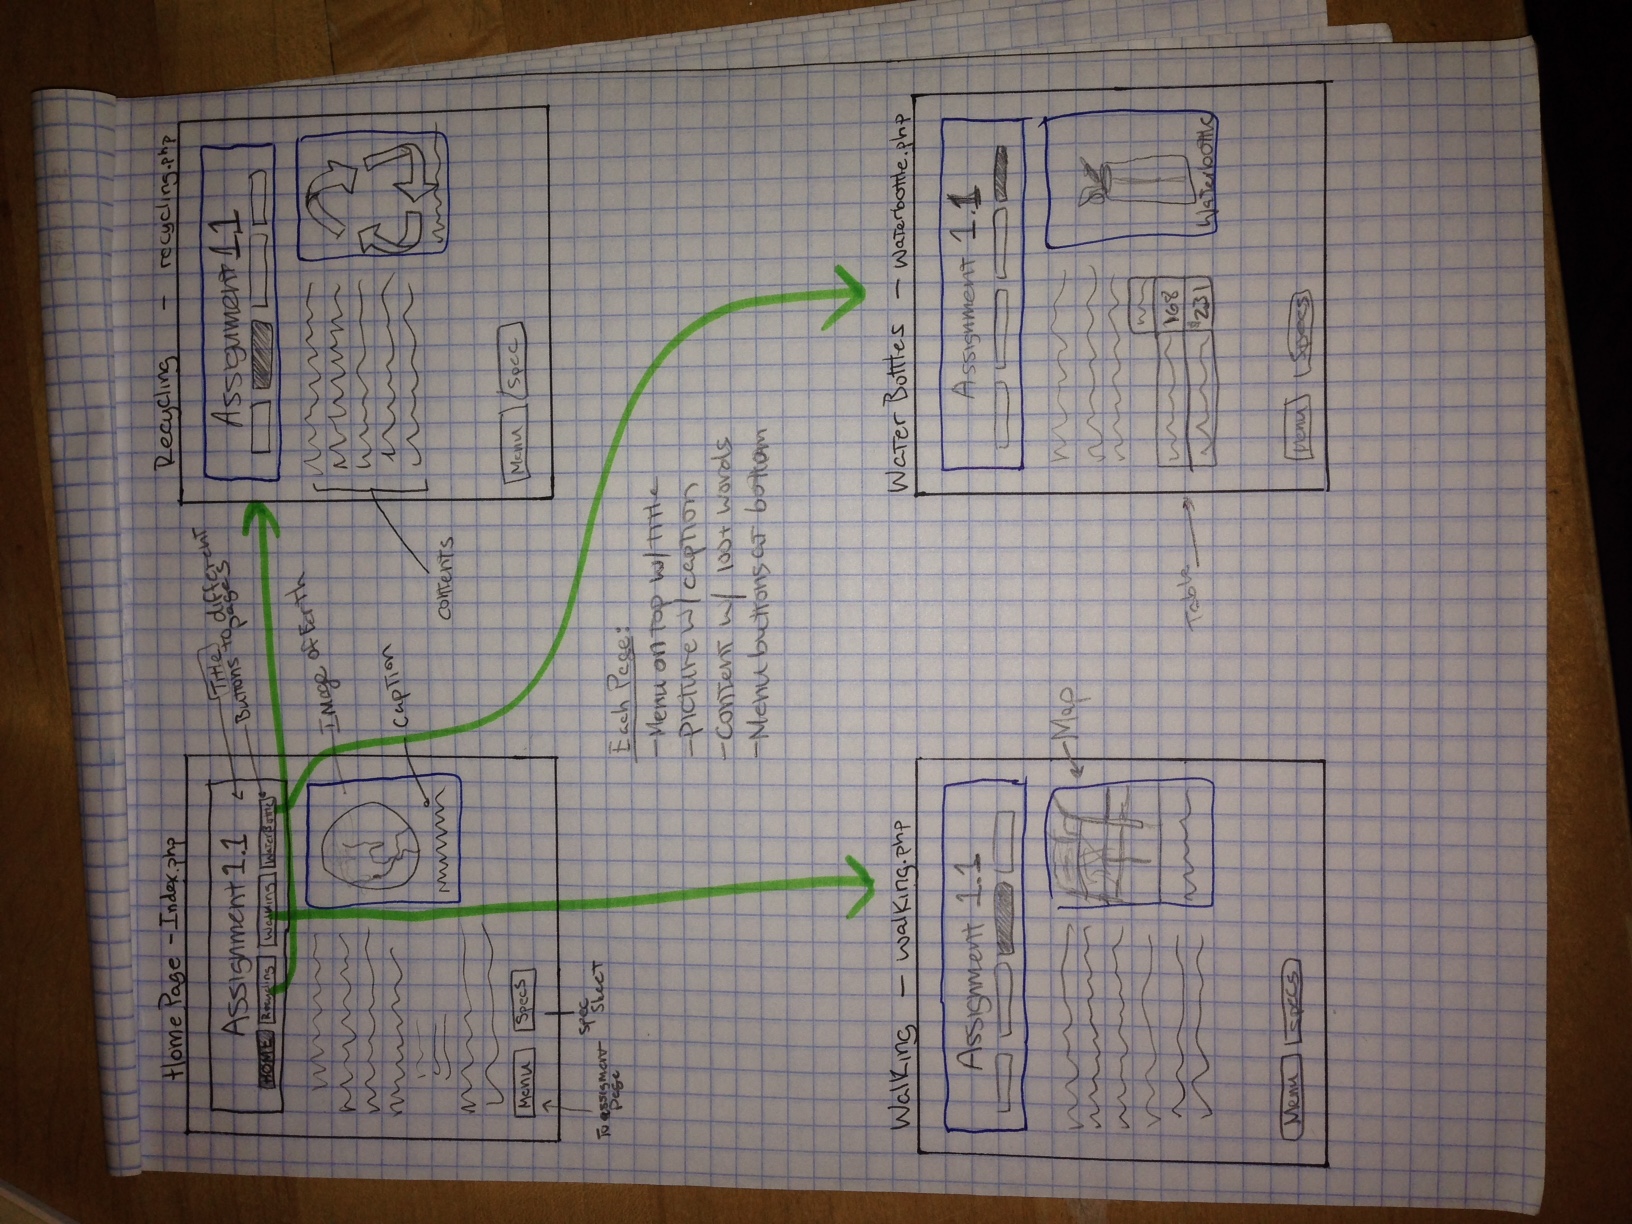 Home Page - Index.php
Assignment 1.1
HOME Recycling Walking WaterBottle
Title
Buttons to different
pages
Image of Earth
caption
Menu Specs
To assigment
Page
Spec
Sheet
Recycling - recycling.php
Assignment 1.1
contents
Menu Spec
Each Page:
- Menu on top w/ title
- picture w/ caption
- Content w/ 100+ words
- Menu buttons at bottom
Walking - walking.php
Assignment 1.1
Map
Menu Specs
Water Bottles - Waterbottle.php
Assignment 1.1
Table
168
$231
Waterbottle
Menu Specs